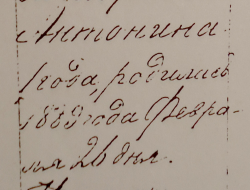 Антонина
года, родилась
1889 года Февра-
ля 26 дня.